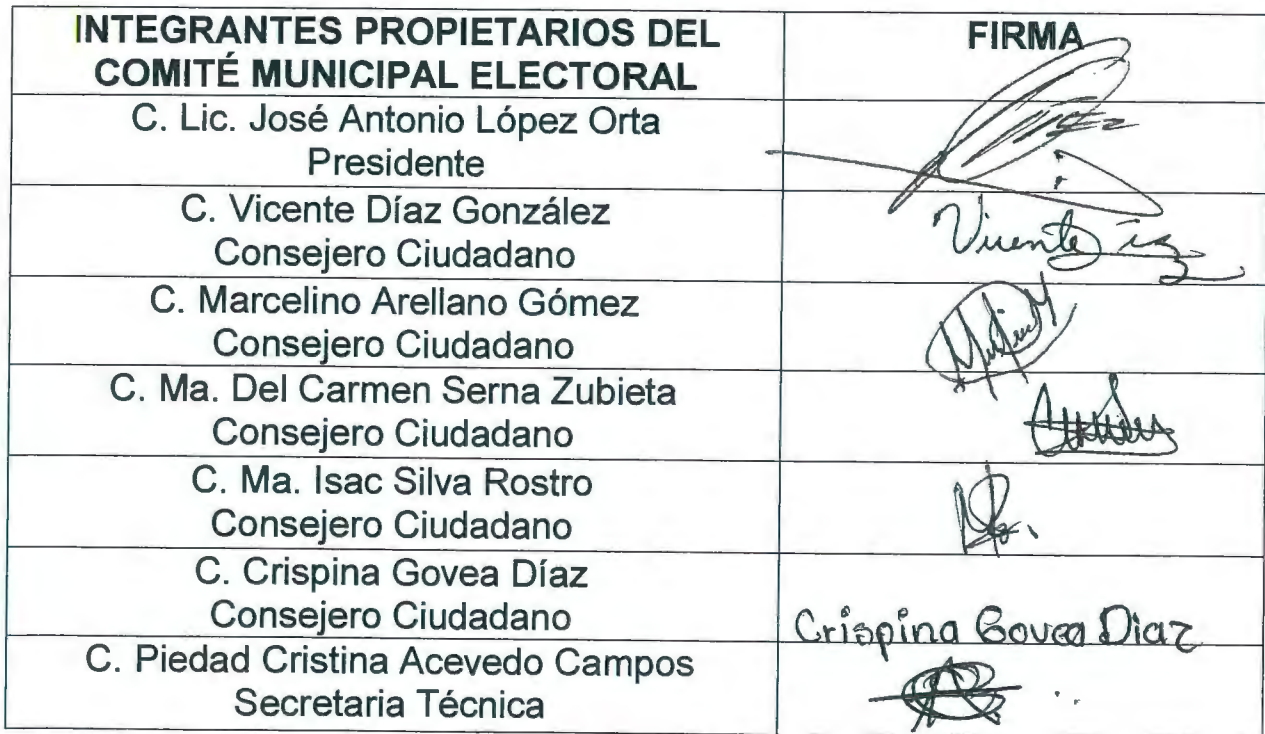 INTEGRANTES PROPIETARIOS DEL
COMITÉ MUNICIPAL ELECTORAL
FIRMA
C. Lic. José Antonio López Orta
Presidente
C. Vicente Díaz González
Consejero Ciudadano
Vicente
C. Marcelino Arellano Gómez
Consejero Ciudadano
C. Ma. Del Carmen Serna Zubieta
Consejero Ciudadano
C. Ma. Isac Silva Rostro
Consejero Ciudadano
C. Crispina Govea Díaz
Consejero Ciudadano
Crispina Govea Diaz
C. Piedad Cristina Acevedo Campos
Secretaria Técnica